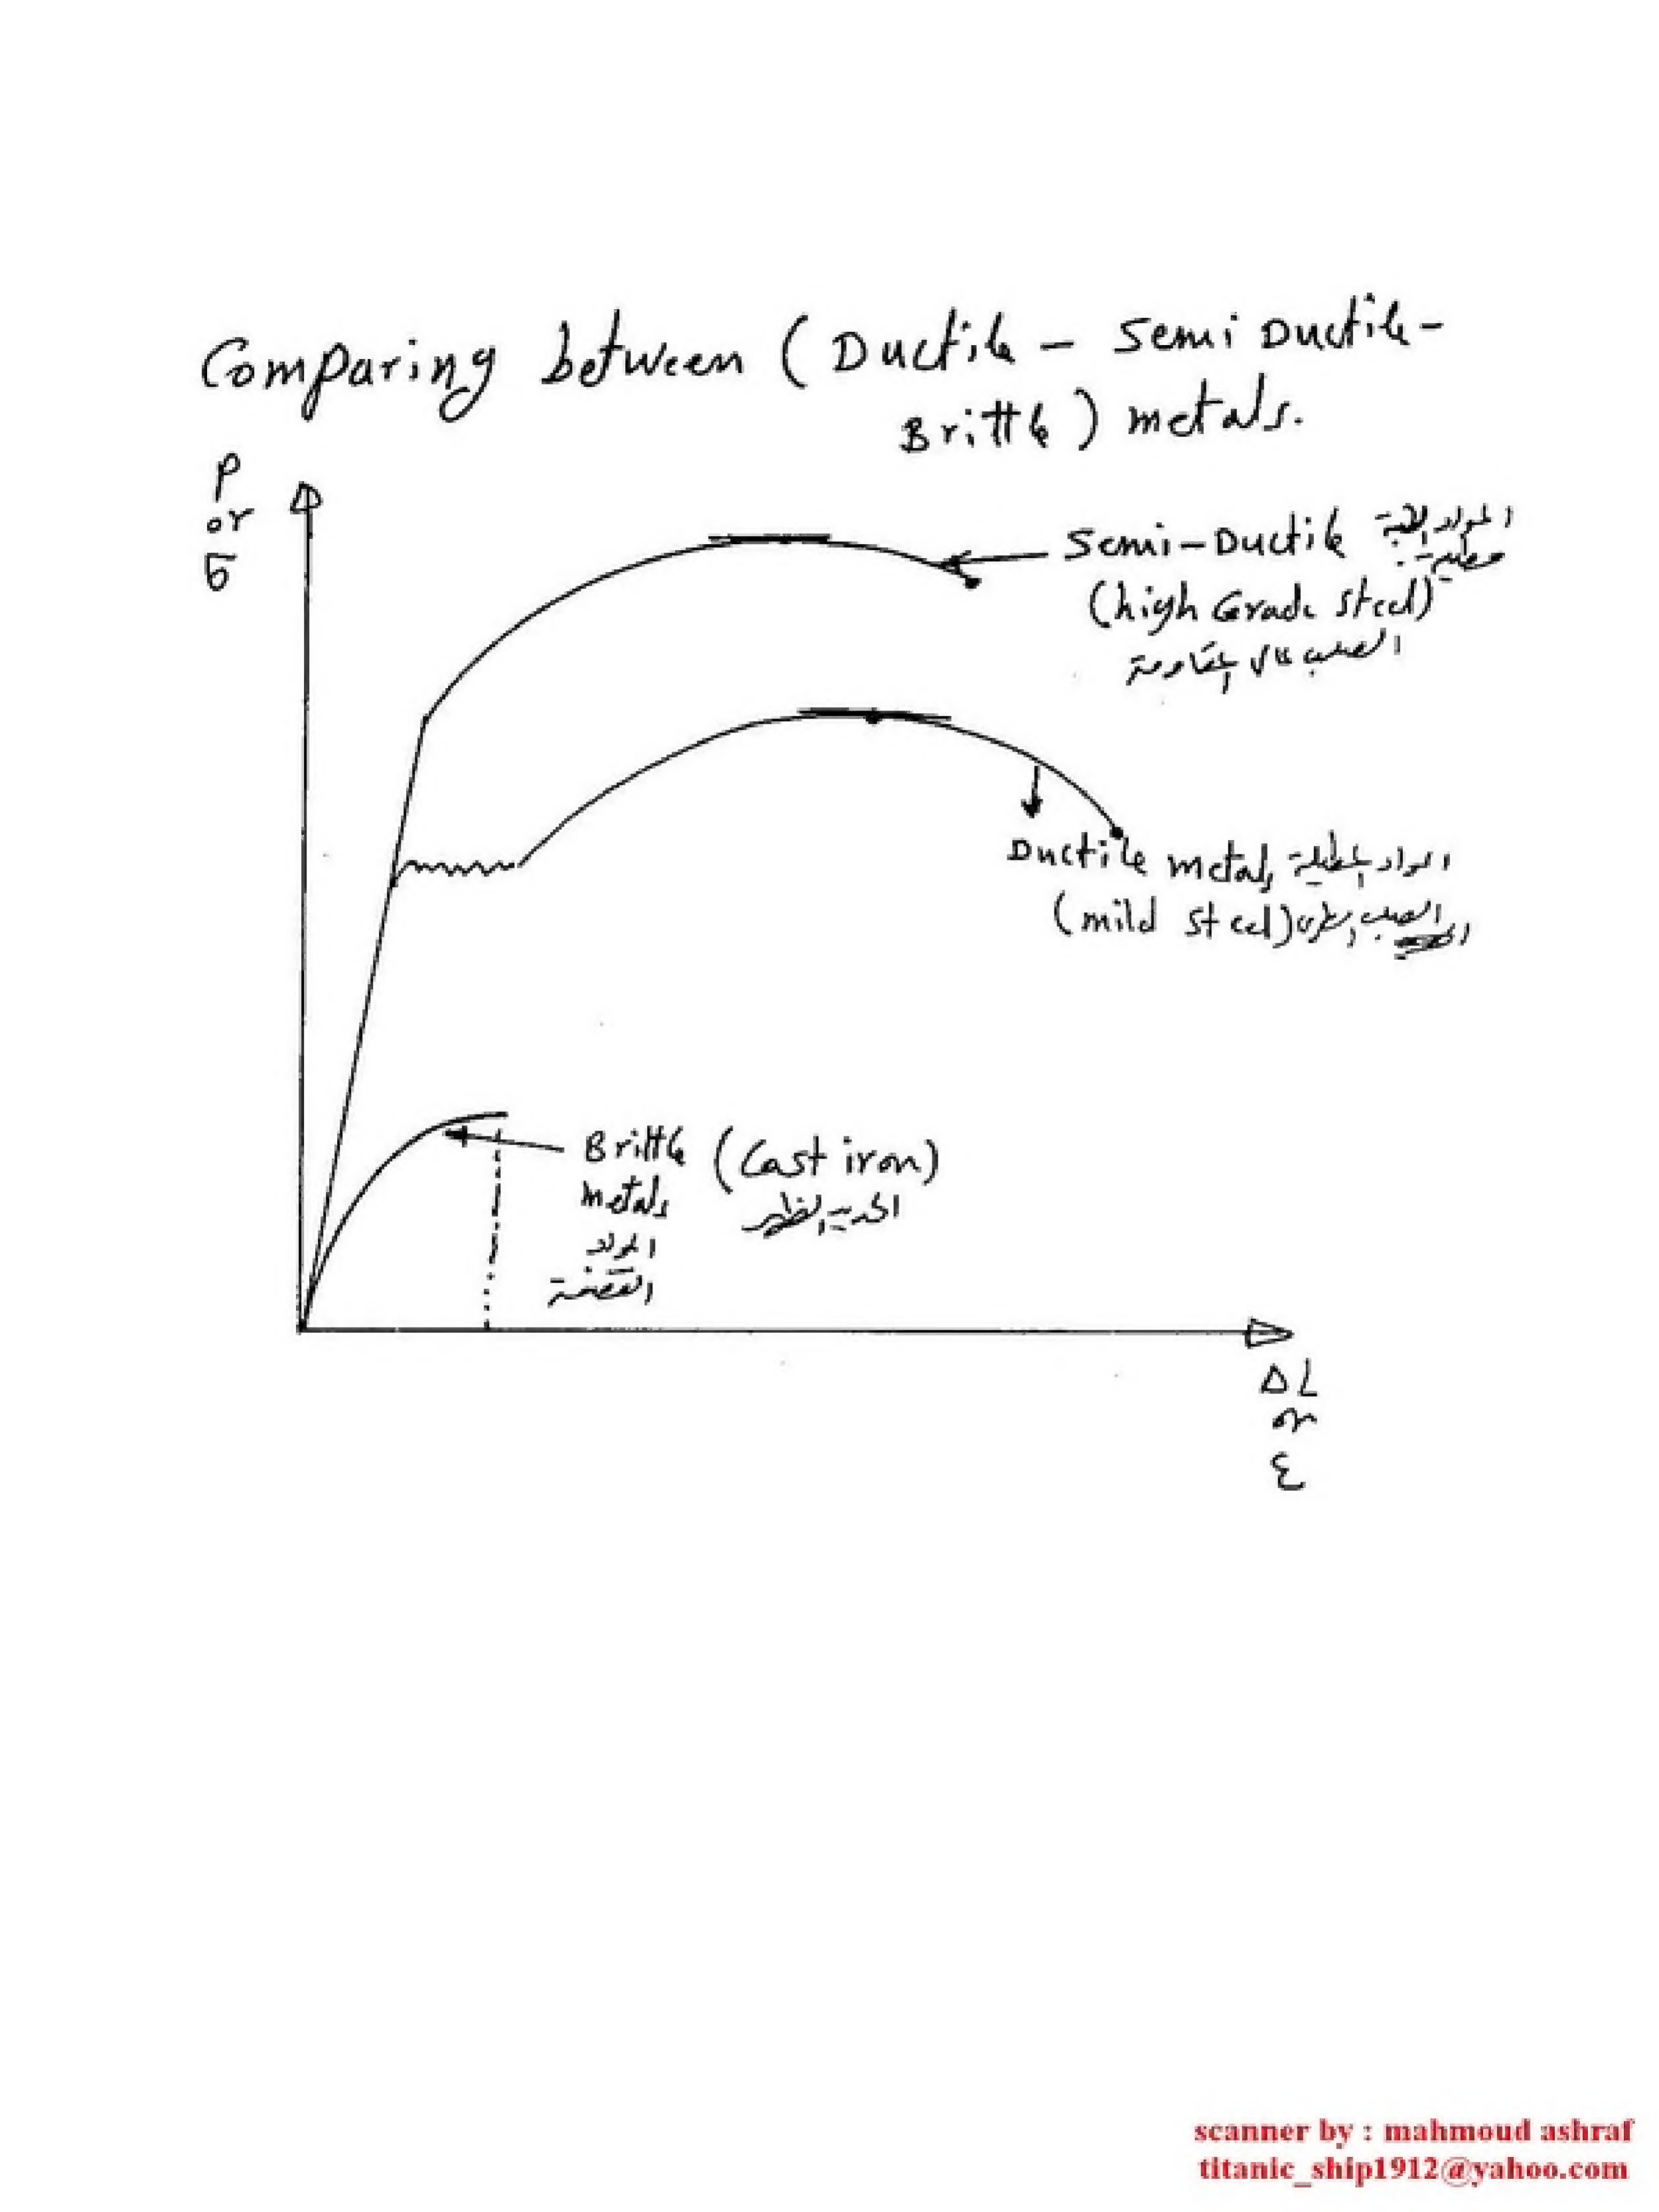 Comparing between (Ductile - Semi Ductile -
Brittle) metals.
P
or
σ
Semi-Ductile المواد النصف
مطيلية
(high Grade steel)
الصلب عالي المقاومة
Ductile metals المواد المطيلة
(mild steel) الصلب الطري
Brittle (Cast iron)
metals الحديد الظهر
المواد
القصفة
ΔL
or
ε
scanner by : mahmoud ashraf
titanic_ship1912@yahoo.com